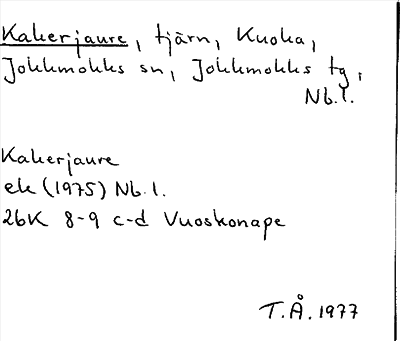 Kakerjaure, tjärn, Kuoka,
Jokkmokks sn, Jokkmokks tg,
Nb.l.
Kakerjaure
ek (1975) Nb.l.
26K 8-9 c-d Vuoskonape
T.Å. 1977